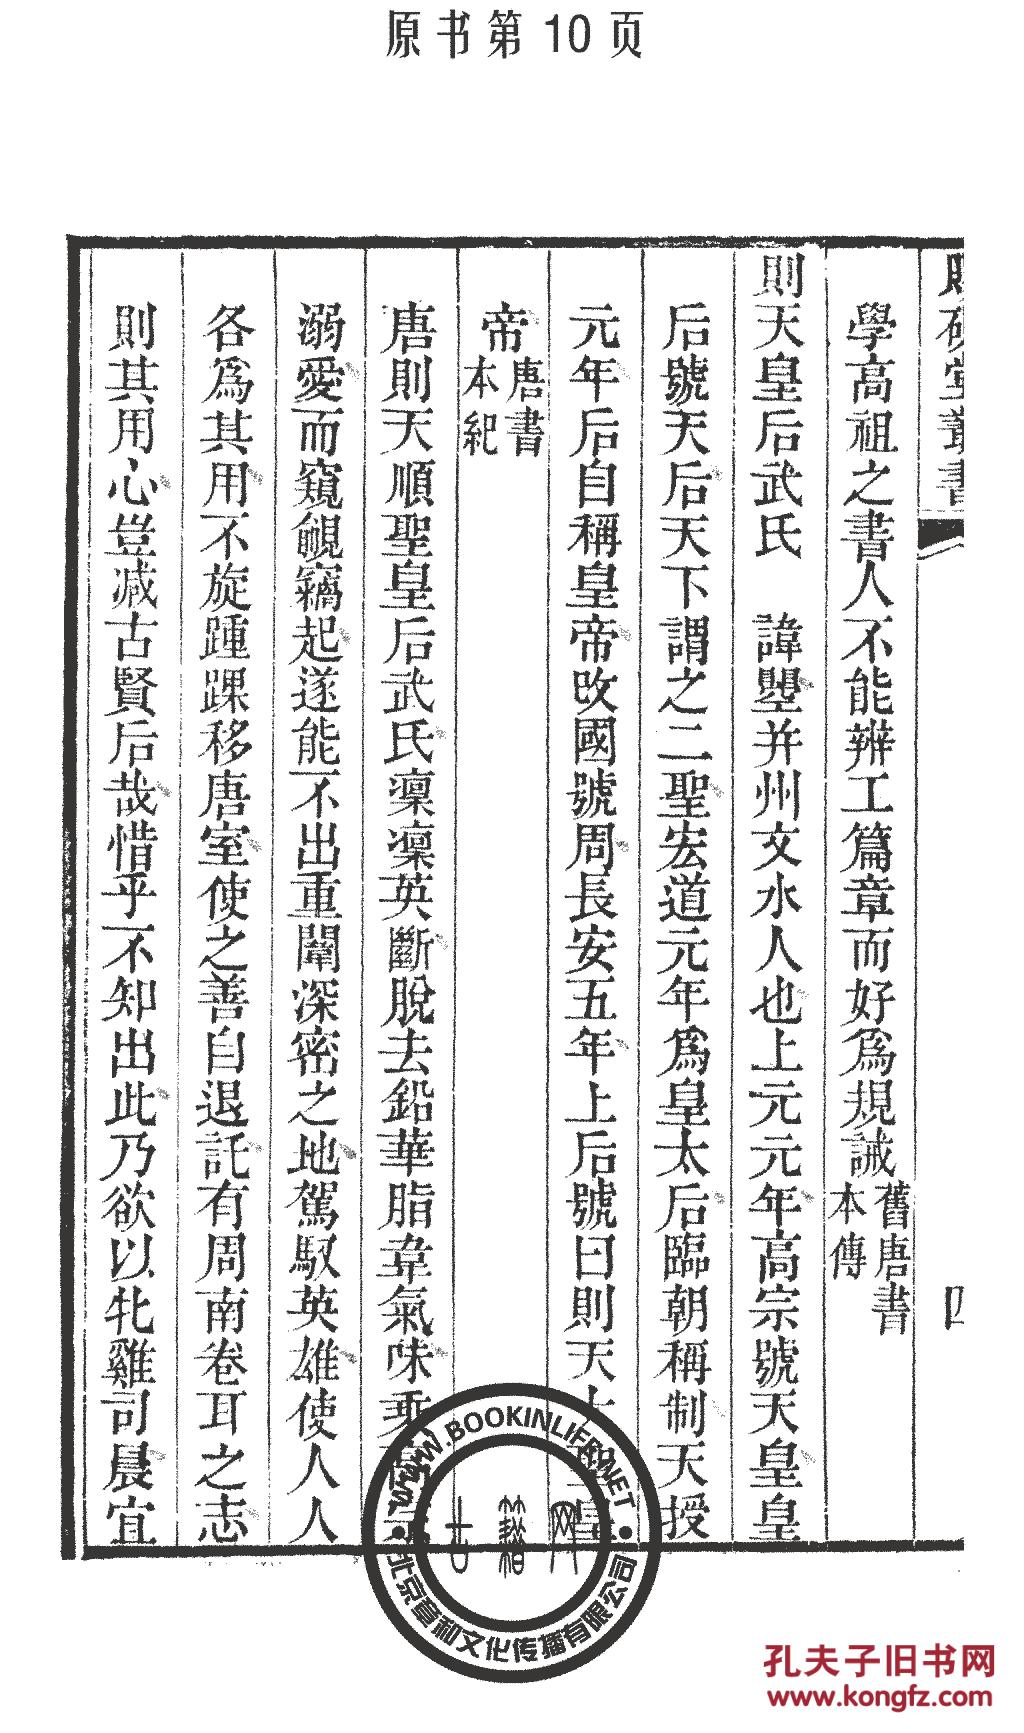 原书第10页
學高祖之書人不能辨工篇章而好爲規誡舊唐書本傳
則天皇后武氏　諱曌并州文水人也上元元年高宗號天皇皇
后號天后天下謂之二聖宏道元年爲皇太后臨朝稱制天授
元年后自稱皇帝改國號周長安五年上后號曰則天大聖皇
帝唐書本紀
唐則天順聖皇后武氏凜凜英斷脫去鉛華脂韋氣味乘
溺愛而窺覦竊起遂能不出重闈深密之地駕馭英雄使人人
各爲其用不旋踵踝移唐室使之善自退託有周南卷耳之志
則其用心豈减古賢后哉惜乎不知出此乃欲以牝雞司晨宜
四
WWW.BOOKINLIFE.NET
籍网
北京章和文化传播有限公司
孔夫子旧书网
www.kongfz.com